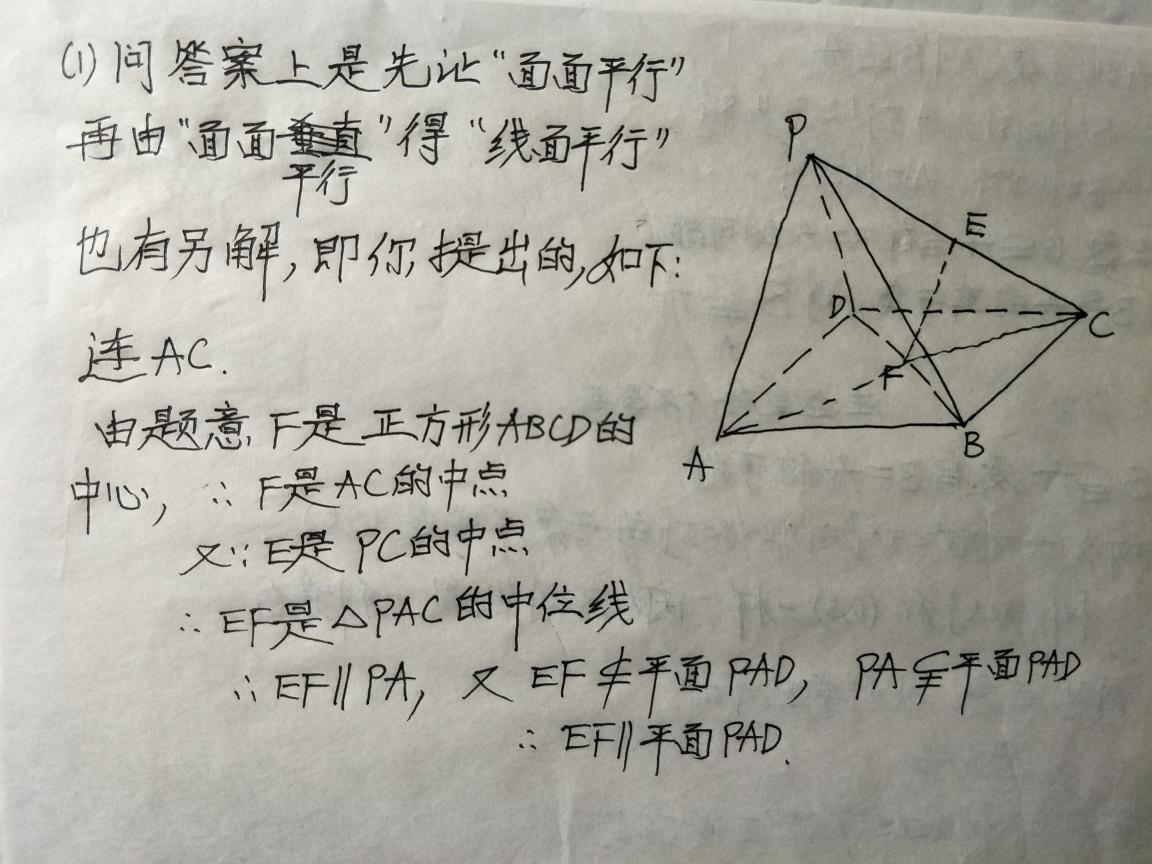 (1)问答案上是先证“面面平行”
再由“面面垂直”得“线面平行”
平行
也有另解,即你提出的,如下:
连AC.
由题意,F是正方形ABCD的
中心,∴F是AC的中点
又∵E是PC的中点
∴EF是△PAC的中位线
∴EF∥PA,又EF⊈平面PAD,PA⊊平面PAD
∴EF∥平面PAD.
P
E
D
C
F
B
A